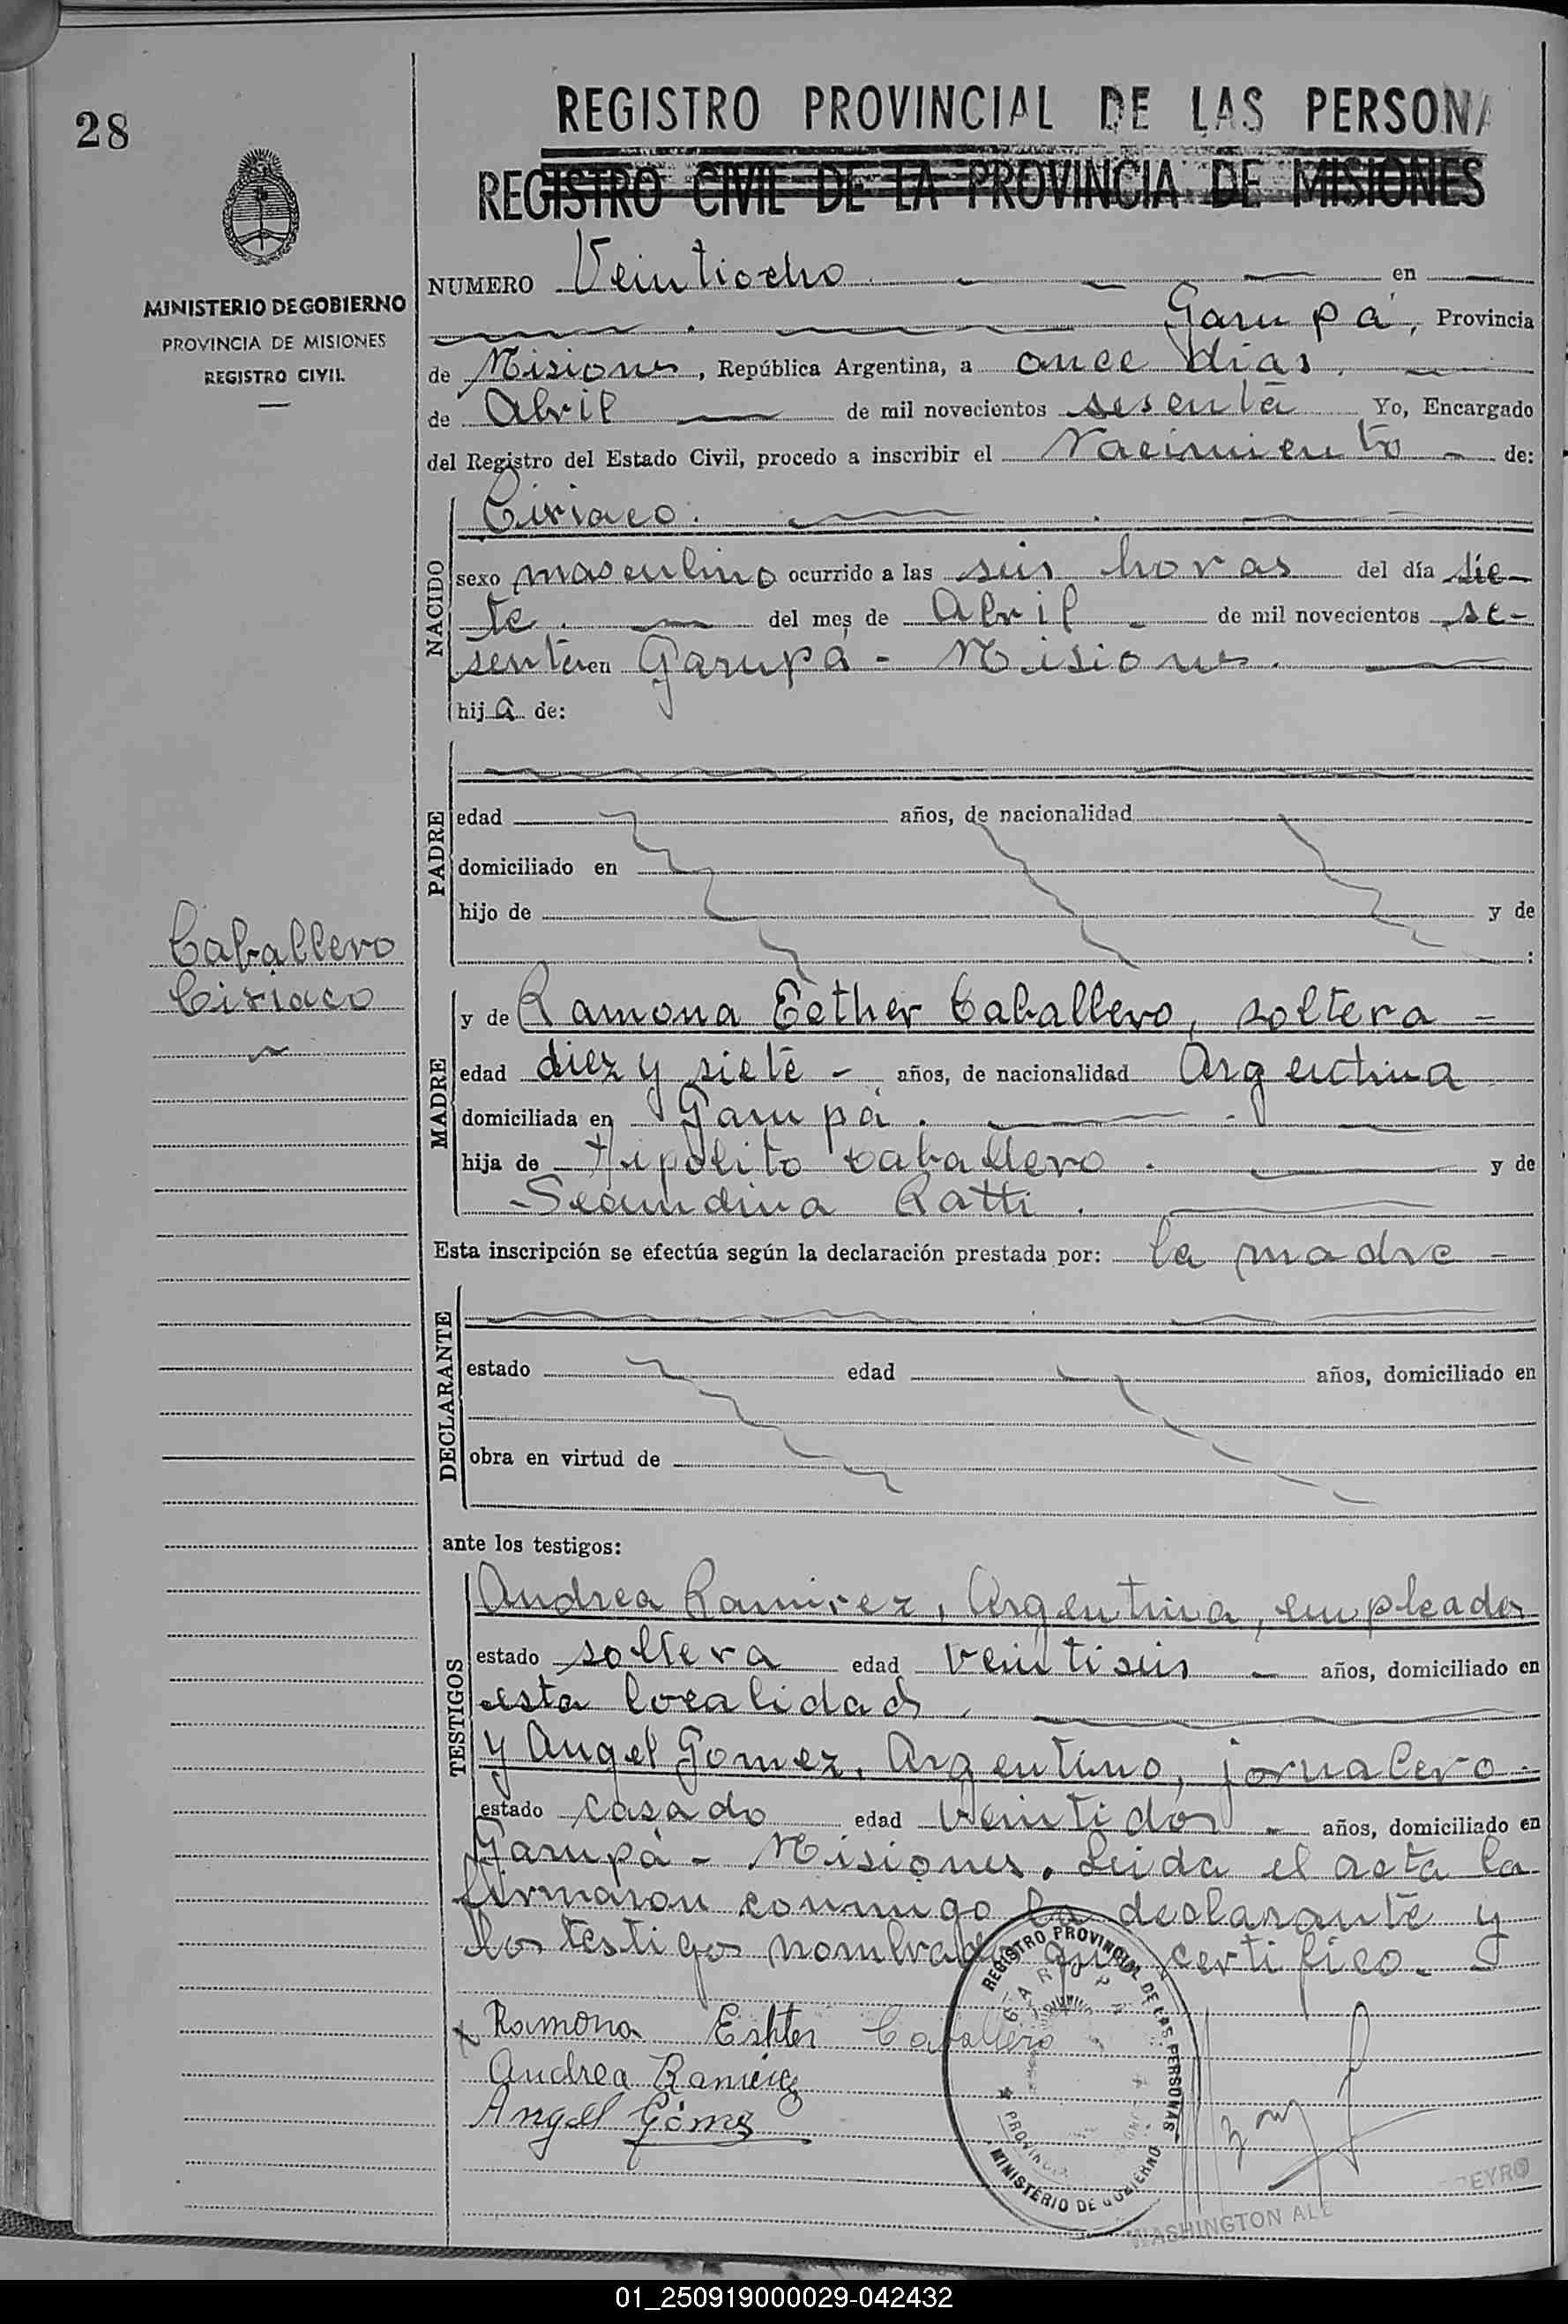 28
MINISTERIO DE GOBIERNO
PROVINCIA DE MISIONES
REGISTRO CIVIL
Caballero
Ciriaco
REGISTRO PROVINCIAL DE LAS PERSONA
REGISTRO CIVIL DE LA PROVINCIA DE MISIONES
NUMERO Veintiocho en
Garupá, Provincia
de Misiones, República Argentina, a once dias
de Abril de mil novecientos sesenta Yo, Encargado
del Registro del Estado Civil, procedo a inscribir el Nacimiento de:
NACIDO
Ciriaco.
sexo masculino ocurrido a las seis horas del día sie-
te. del mes de Abril de mil novecientos se-
senta en Garupá - Misiones.
hij a de:
PADRE
edad años, de nacionalidad
domiciliado en
hijo de y de
:
MADRE
y de Ramona Esther Caballero, soltera -
edad diez y siete - años, de nacionalidad Argentina
domiciliada en Garupá.
hija de Hipolito Caballero. y de
Secundina Ratti.
Esta inscripción se efectúa según la declaración prestada por: la madre -
DECLARANTE
estado edad años, domiciliado en
obra en virtud de
ante los testigos:
TESTIGOS
Andrea Ramirez, Argentina, empleada
estado soltera edad veintiseis - años, domiciliado en
esta localidad
y Angel Gomez, Argentino, jornalero -
estado casado edad veintidos - años, domiciliado en
Garupá - Misiones. Leida el acta la
firmaron conmigo la declarante y
los testigos nombrados que certifico.
x Ramona Eshter Caballero
Andrea Ramirez
Angel Gómez
REGISTRO PROVINCIAL DE LAS PERSONAS
GARUPA
PROVINCIA
MINISTERIO DE GOBIERNO
WASHINGTON
01_250919000029-042432